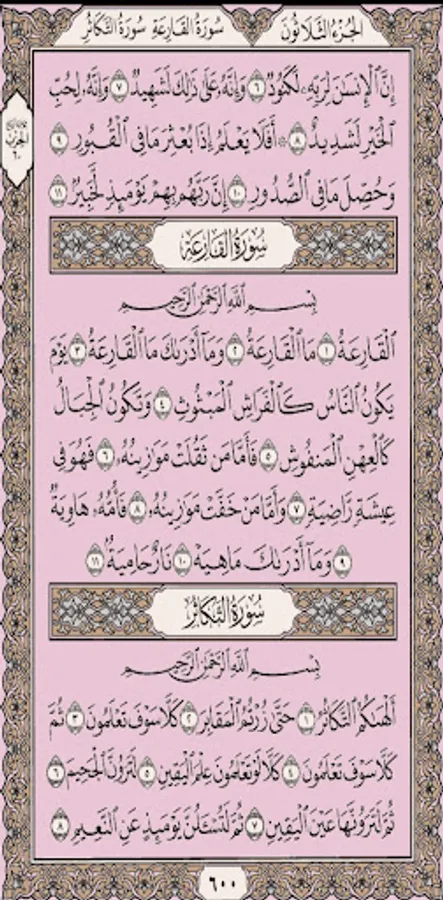 الجزء الثلاثون
سورة القارعة سورة التكاثر
إِنَّ ٱلْإِنسَٰنَ لِرَبِّهِۦ لَكَنُودٌ ٦ وَإِنَّهُۥ عَلَىٰ ذَٰلِكَ لَشَهِيدٌ ٧ وَإِنَّهُۥ لِحُبِّ
ٱلْخَيْرِ لَشَدِيدٌ ٨ ۞ أَفَلَا يَعْلَمُ إِذَا بُعْثِرَ مَا فِى ٱلْقُبُورِ ٩
وَحُصِّلَ مَا فِى ٱلصُّدُورِ ١٠ إِنَّ رَبَّهُم بِهِمْ يَوْمَئِذٍ لَّخَبِيرٌۢ ١١
سُورَةُ القَارِعَةِ
بِسْمِ ٱللَّهِ ٱلرَّحْمَٰنِ ٱلرَّحِيمِ
ٱلْقَارِعَةُ ١ مَا ٱلْقَارِعَةُ ٢ وَمَآ أَدْرَىٰكَ مَا ٱلْقَارِعَةُ ٣ يَوْمَ
يَكُونُ ٱلنَّاسُ كَٱلْفَرَاشِ ٱلْمَبْثُوثِ ٤ وَتَكُونُ ٱلْجِبَالُ
كَٱلْعِهْنِ ٱلْمَنفُوشِ ٥ فَأَمَّا مَن ثَقُلَتْ مَوَٰزِينُهُۥ ٦ فَهُوَ فِى
عِيشَةٍ رَّاضِيَةٍ ٧ وَأَمَّا مَنْ خَفَّتْ مَوَٰزِينُهُۥ ٨ فَأُمُّهُۥ هَاوِيَةٌ
٩ وَمَآ أَدْرَىٰكَ مَا هِيَهْ ١٠ نَارٌ حَامِيَةٌۢ ١١
سُورَةُ التَّكَاثُرِ
بِسْمِ ٱللَّهِ ٱلرَّحْمَٰنِ ٱلرَّحِيمِ
أَلْهَىٰكُمُ ٱلتَّكَاثُرُ ١ حَتَّىٰ زُرْتُمُ ٱلْمَقَابِرَ ٢ كَلَّا سَوْفَ تَعْلَمُونَ ٣ ثُمَّ
كَلَّا سَوْفَ تَعْلَمُونَ ٤ كَلَّا لَوْ تَعْلَمُونَ عِلْمَ ٱلْيَقِينِ ٥ لَتَرَوُنَّ ٱلْجَحِيمَ ٦
ثُمَّ لَتَرَوُنَّهَا عَيْنَ ٱلْيَقِينِ ٧ ثُمَّ لَتُسْـَٔلُنَّ يَوْمَئِذٍ عَنِ ٱلنَّعِيمِ ٨
٦٠٠
الحزب
٦٠